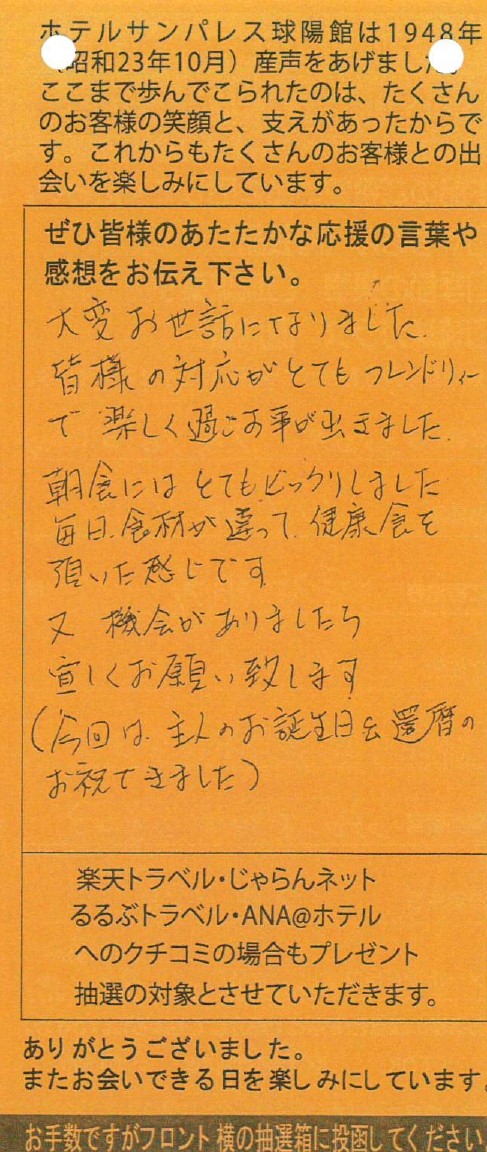 ホテルサンパレス球陽館は1948年
（昭和23年10月）産声をあげました。
ここまで歩んでこられたのは、たくさん
のお客様の笑顔と、支えがあったからで
す。これからもたくさんのお客様との出
会いを楽しみにしています。
ぜひ皆様のあたたかな応援の言葉や
感想をお伝え下さい。
大変お世話になりました。
皆様の対応がとてもフレンドリィー
で楽しく過ごす事が出きました。
朝食にはとてもビックリしました
毎日、食材が違って、健康食を
頂いた感じです
又 機会がありましたら
宜しくお願い致します
(今回は、主人のお誕生日&還暦の
お祝できました)
楽天トラベル・じゃらんネット
るるぶトラベル・ANA@ホテル
へのクチコミの場合もプレゼント
抽選の対象とさせていただきます。
ありがとうございました。
またお会いできる日を楽しみにしています。
お手数ですがフロント横の抽選箱に投函してください